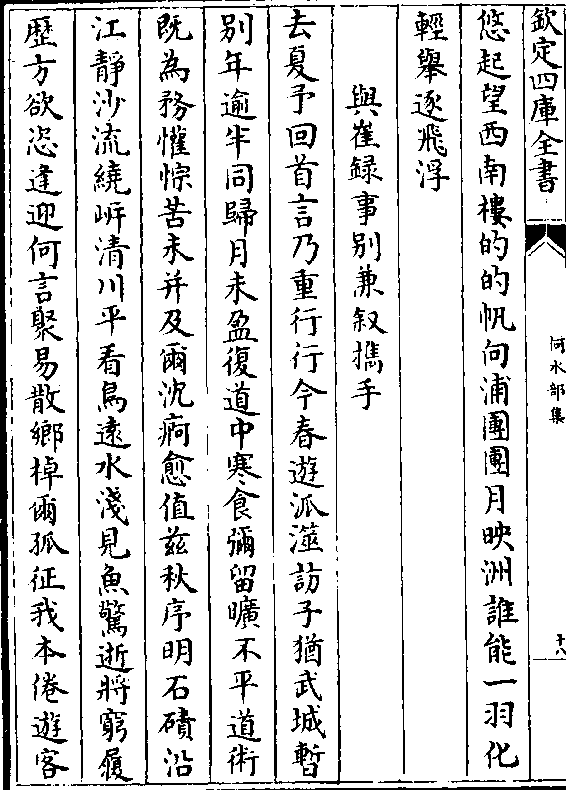 欽定四庫全書
何水部集
十八
悠起望西南樓的的帆向浦團團月映洲誰能一羽化
輕舉逐飛浮
與崔録事别兼叙攜手
去夏予回首言乃重行行今春遊派澨訪子猶武城暫
别年逾半同歸月未盈復道中寒食彌留曠不平道術
既為務懽悰苦未并及爾沈痾愈值兹秋序明石磧沿
江靜沙流繞㟁清川平看鳥遠水淺見魚驚逝將窮履
歷方欲恣逢迎何言聚易散鄉棹爾孤征我本倦遊客